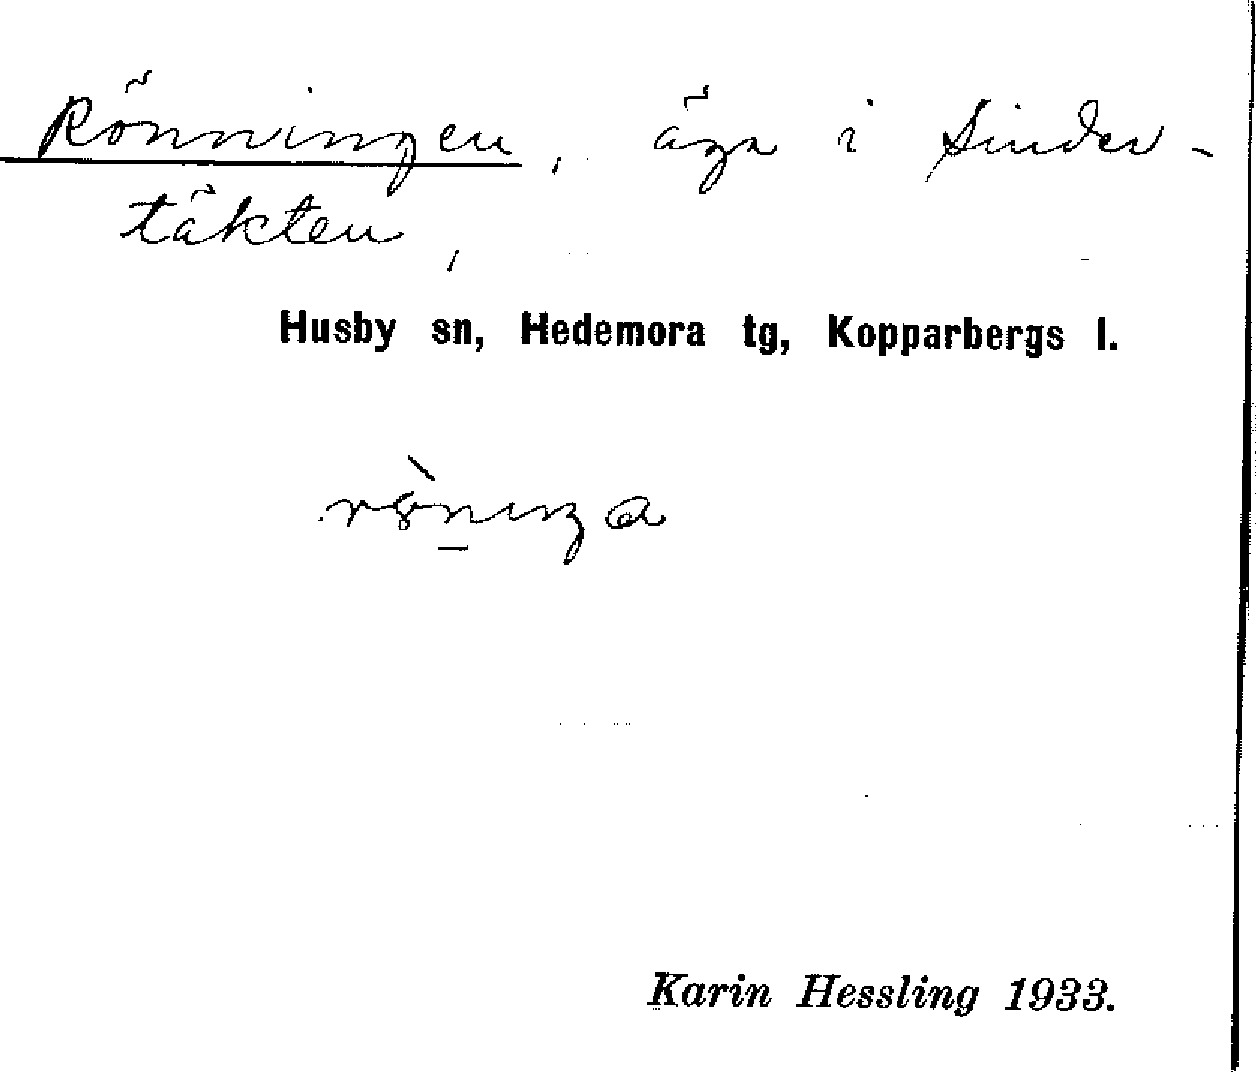 Rönningen, äga i Sinder-
täkten,
Husby sn, Hedemora tg, Kopparbergs l.
Karin Hessling 1933.